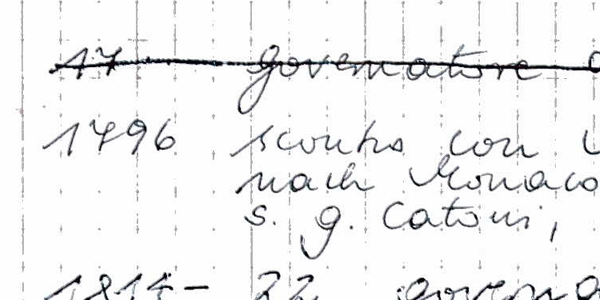 17 governatore
1796 scontro con
nach Monaco
s. g. Catoni,
1814-22 governa